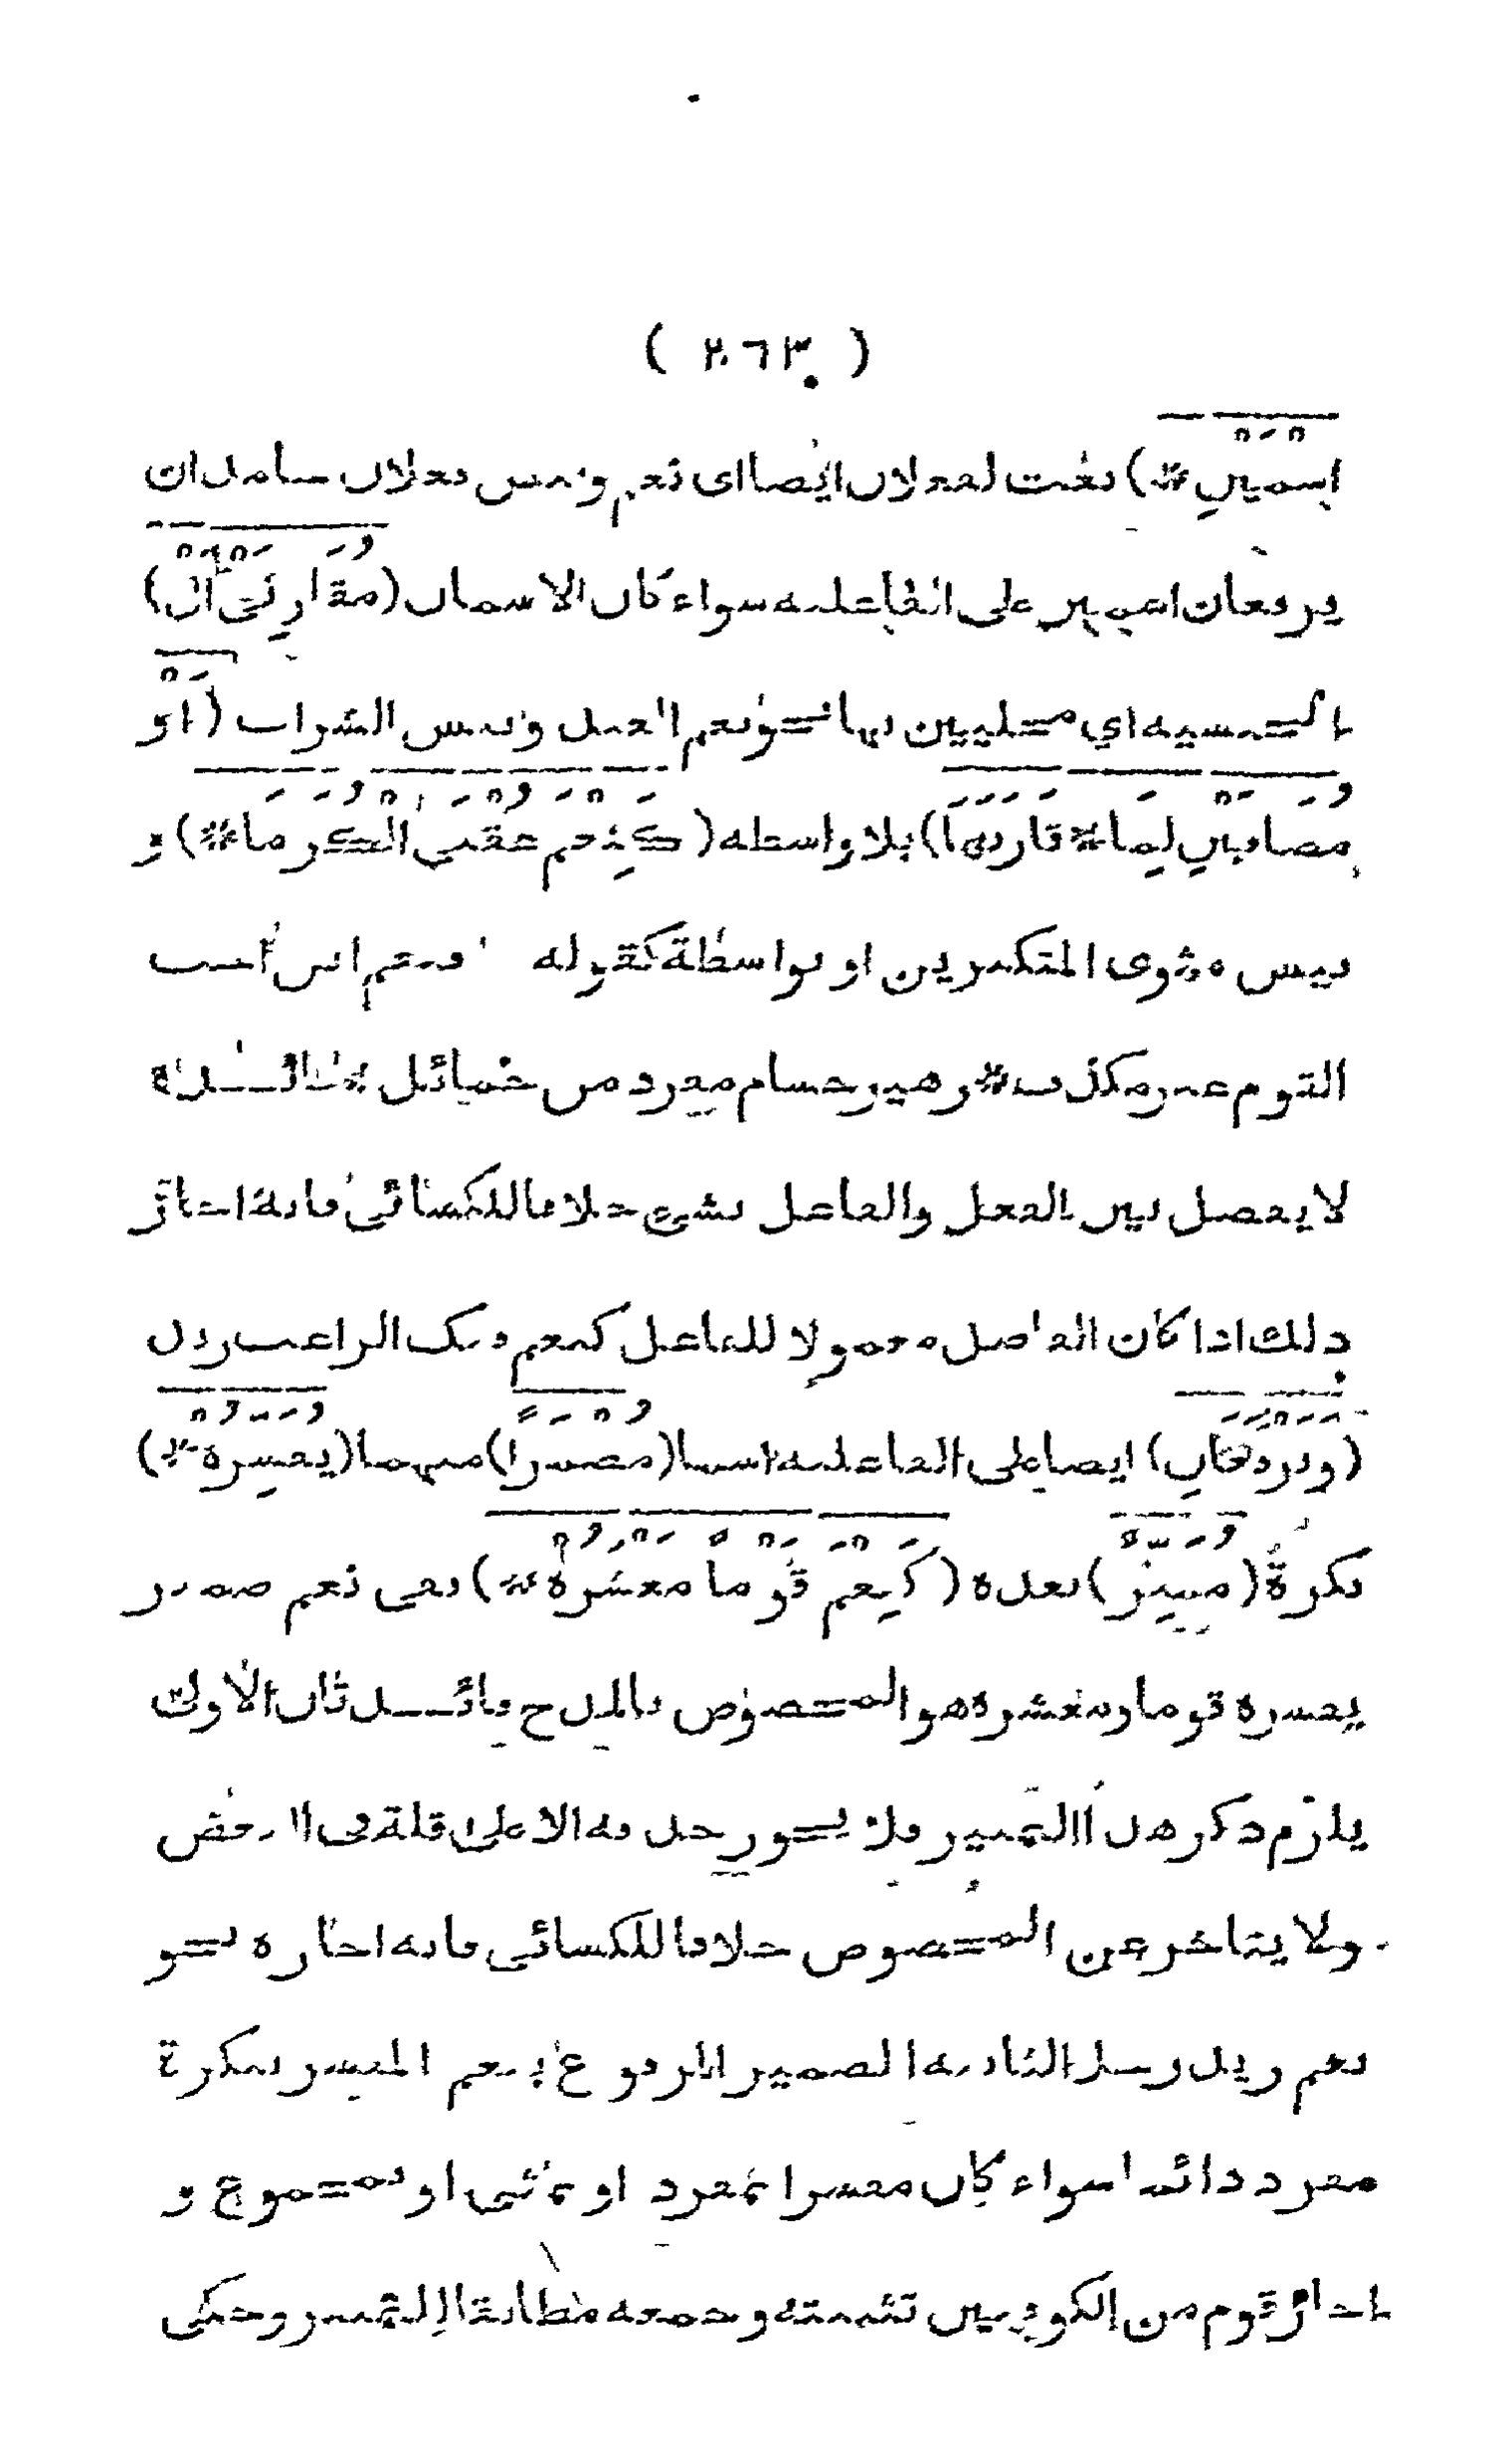 ( ٢٦٣ )
اِسْمَيْنِ *) نعت لفعلان ايضا اى نعم وبئس فعلان جامدان
يرفعان اسمين على الفاعلية سواء كان الاسمان (مُقَارِنَىْ اَلْ)
الجنسية اي محليين بها نحو نعم العبد وبئس الشراب (اَوْ
مُضَافَيْنِ لِمَا * قَارَنَهَا) بلا واسطة (كَنِعْمَ عُقْبَى الْكُرَمَا *) و
بيس مثوى المتكبرين او بواسطة كقوله فنعم ابن اخت
القوم غير مكذب * زهير حسام مفرد من حمائل *
لا يفصل بين الفعل والفاعل بشئ خلافا للكسائى فانه اجاز
ذلك اذا كان الفاصل معمولا للفاعل كنعم فيك الراغب زيد
(وَيَرْفَعَانِ) ايضا على الفاعلية اسما (مُضْمَرًا) مبهما (يُفَسِّرُهْ *)
نكرةٌ (مُمَيِّزٌ) بعده (كَنِعْمَ قَوْمًا مَعْشَرُهْ *) ففى نعم ضمير
يفسره قوما ومعشره هو المخصوص بالمدح فائدتان الاولى
يلزم ذكر هذا التمييز فلا يجوز حذفه الا على قلة فى الارحض
ولا يتاخر عن المخصوص خلافا للكسائى فانه اجازه نحو
نعم زيد رجلا الثانية الضمير المرفوع بنعم المفسر بنكرة
مفرد دائما سواء كان مفسرا بمفرد او بمثنى او بمجموع و
اجاز قوم من الكوفيين تثنيته وجمعه مطابقا للتمييز وحكى